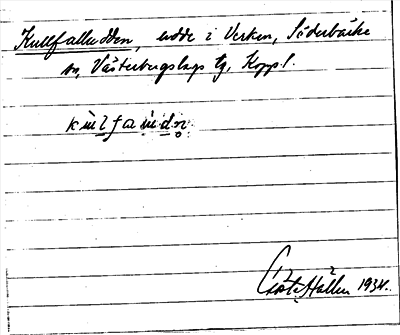 Kullfalludden, udde i Verken, Söderbärke
sn, Västerbergslags tg, Koppl.
Gösta Hallén 1934.